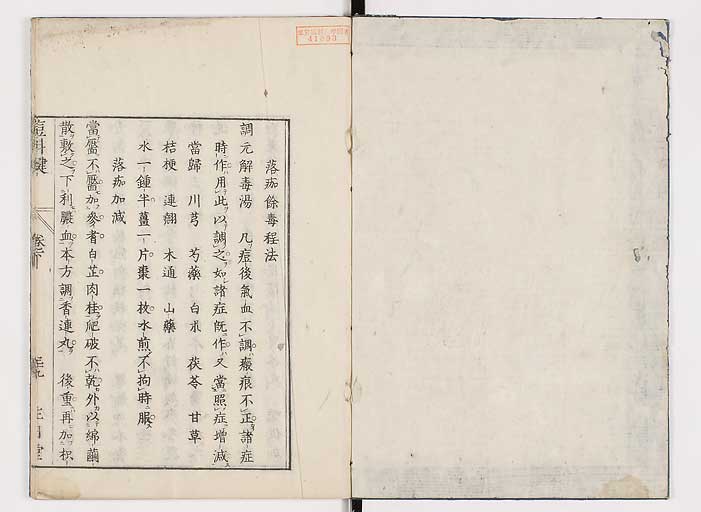 落痂餘毒程法
調元解毒湯　凡痘後氣血不調瘢痕不正諸症
時作用此以調之如諸症既作又當照症增減
當歸　川芎　芍藥　白朮　茯苓　甘草
桔梗　連翹　木通　山藥
水一鍾半薑一片棗一枚水煎不拘時服
落痂加減
當靨不靨加參者白芷肉桂爬破不乾外以綿繭
散敷之下利膿血本方調香連丸　後重再加枳
痘科鍵
卷下
41893